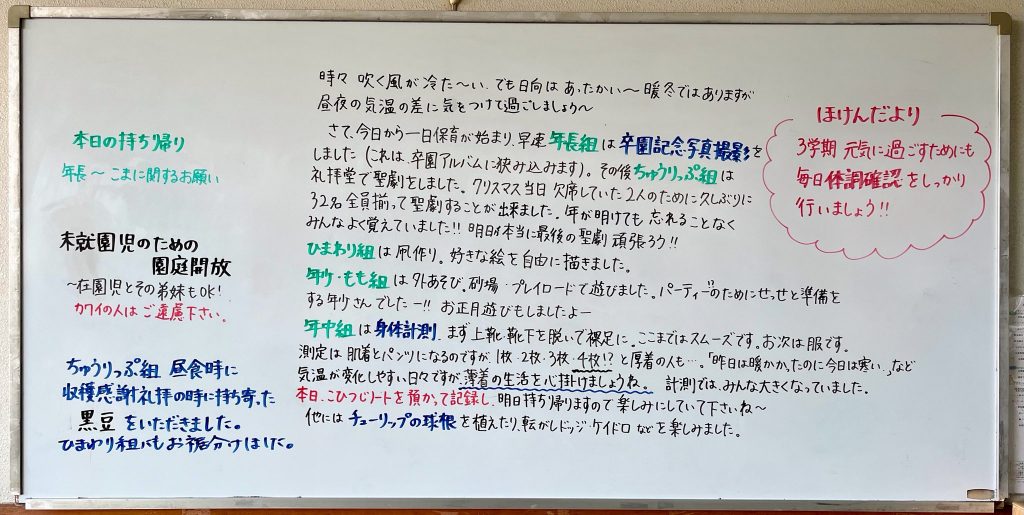 本日の持ち帰り
年長〜こまに関するお願い
未就園児のための
園庭開放
〜在園児とその弟妹もOK!
カワイの人はご遠慮下さい。
ちゅうりっぷ組 昼食時に
収穫感謝礼拝の時に持ち寄った
黒豆をいただきました。
ひまわり組にもお裾分けしました。
時々 吹く風が冷た〜い。でも日向はあったかい〜暖冬ではありますが
昼夜の気温の差に気をつけて過ごしましょう〜
さて、今日から一日保育が始まり、早速 年長組は卒園記念写真撮影を
しました(これは、卒園アルバムに挟み込みます)。その後ちゅうりっぷ組は
礼拝堂で聖劇をしました。クリスマス当日 欠席していた2人のために久しぶりに
32名全員揃って聖劇することが出来ました。年が明けても 忘れることなく
みんなよく覚えていました!! 明日が本当に最後の聖劇 頑張ろう!!
ひまわり組は凧作り。好きな絵を自由に描きました。
年少・もも組は外あそび。砂場・プレイロードで遊びました。パーティーのためにせっせと準備を
する年少さんでしたー!! お正月遊びもしましたよー
年中組は身体計測。まず上靴・靴下を脱いで裸足に。ここまではスムーズです。お次は服です。
測定は肌着とパンツになるのですが、1枚・2枚・3枚・4枚!?と厚着の人も…。「昨日は暖かかったのに今日は寒い。」など
気温が変化しやすい日々ですが、薄着の生活を心掛けましょうね。 計測では、みんな大きくなっていました。
本日、こひつじノートを預かって記録し、明日持ち帰りますので楽しみにしていて下さいね〜
他にはチューリップの球根を植えたり、転がしドッジ・ケイドロなどを楽しみました。
ほけんだより
3学期 元気に過ごすためにも
毎日体調確認をしっかり
行いましょう!!